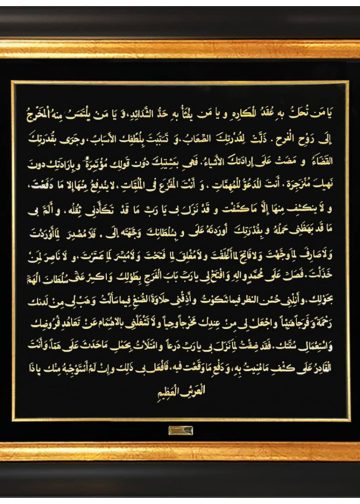 يَا مَن تُحَلُّ بِهِ عُقَدُ الْمَكَارِهِ وَ يَا مَن يُفْثَأُ بِهِ حَدُّ الشَّدَائِدِ، وَ يَا مَن يُلْتَمَسُ مِنْهُ الْمَخْرَجُ
إِلَى رَوْحِ الْفَرَجِ. ذَلَّتْ لِقُدْرَتِكَ الصِّعَابُ، وَ تَسَبَّبَتْ بِلُطْفِكَ الْأَسْبَابُ، وَجَرَى بِقُدْرَتِكَ
الْقَضَاءُ وَ مَضَتْ عَلَى إِرَادَتِكَ الْأَشْيَاءُ. فَهِيَ بِمَشِيَّتِكَ دُونَ قَوْلِكَ مُؤْتَمِرَةٌ، وَ بِإِرَادَتِكَ دُونَ
نَهْيِكَ مُنْزَجِرَةٌ. أَنْتَ الْمَدْعُوُّ لِلْمُهِمَّاتِ، وَ أَنْتَ الْمَفْزَعُ فِي الْمُلِمَّاتِ، لَا يَنْدَفِعُ مِنْهَا إِلَّا مَا دَفَعْتَ،
وَ لَا يَنْكَشِفُ مِنْهَا إِلَّا مَا كَشَفْتَ وَ قَدْ نَزَلَ بِي يَا رَبِّ مَا قَدْ تَكَأَّدَنِي ثِقْلُهُ، وَ أَلَمَّ بِي
مَا قَدْ بَهَظَنِي حَمْلُهُ وَ بِقُدْرَتِكَ أَوْرَدْتَهُ عَلَيَّ وَ بِسُلْطَانِكَ وَجَّهْتَهُ إِلَيَّ. فَلَا مُصْدِرَ لِمَا أَوْرَدْتَ
وَلَا صَارِفَ لِمَا وَجَّهْتَ وَلَا فَاتِحَ لِمَا أَغْلَقْتَ وَلَا مُغْلِقَ لِمَا فَتَحْتَ وَلَا مُيَسِّرَ لِمَا عَسَّرْتَ، وَ لَا نَاصِرَ لِمَنْ
خَذَلْتَ. فَصَلِّ عَلَى مُحَمَّدٍ وَآلِهِ وَ افْتَحْ لِي يَا رَبِّ بَابَ الْفَرَجِ بِطَوْلِكَ وَ اكْسِرْ عَنِّي سُلْطَانَ الْهَمِّ
بِحَوْلِكَ، وَ أَنِلْنِي حُسْنَ النَّظَرِ فِيمَا شَكَوْتُ وَ أَذِقْنِي حَلَاوَةَ الصُّنْعِ فِيمَا سَأَلْتُ وَ هَبْ لِي مِنْ لَدُنْكَ
رَحْمَةً وَ فَرَجاً هَنِيئاً وَ اجْعَلْ لِي مِنْ عِنْدِكَ مَخْرَجاً وَحِيّاً وَ لَا تَشْغَلْنِي بِالِاهْتِمَامِ عَنْ تَعَاهُدِ فُرُوضِكَ
وَ اسْتِعْمَالِ سُنَّتِكَ. فَقَدْ ضِقْتُ لِمَا نَزَلَ بِي يَا رَبِّ ذَرْعاً وَ امْتَلَأْتُ بِحَمْلِ مَا حَدَثَ عَلَيَّ هَمّاً، وَ أَنْتَ
الْقَادِرُ عَلَى كَشْفِ مَا مُنِيتُ بِهِ، وَ دَفْعِ مَا وَقَعْتُ فِيهِ، فَافْعَلْ بِي ذَلِكَ وَ إِنْ لَمْ أَسْتَوْجِبْهُ مِنْكَ يَا ذَا
الْعَرْشِ الْعَظِيمِ